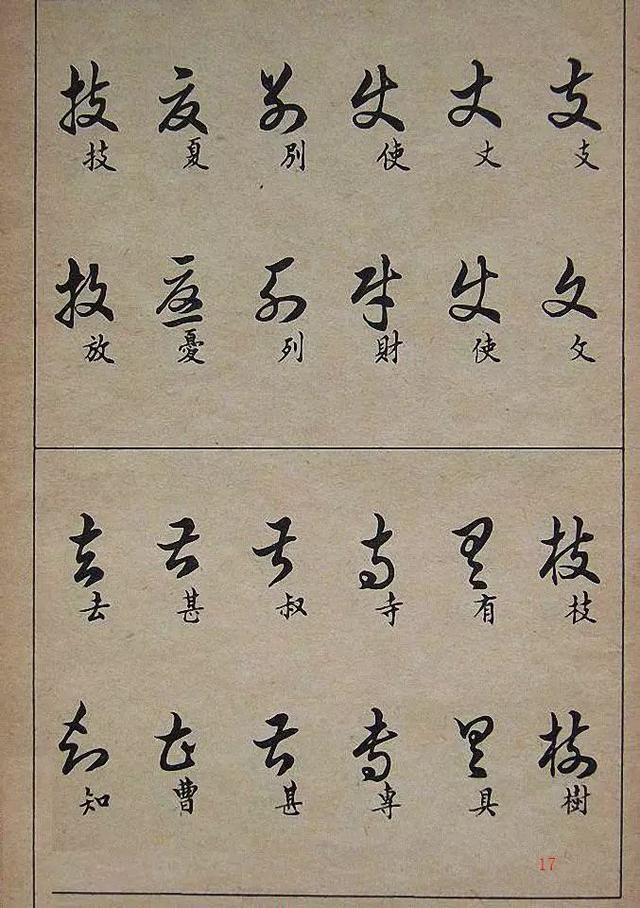 支支文文
丈丈使使
使使財財
別別列列
夏夏憂憂
技技放放
枝枝樹樹
有有具具
寺寺専専
叔叔甚甚
甚甚曹曹
去去知知
17